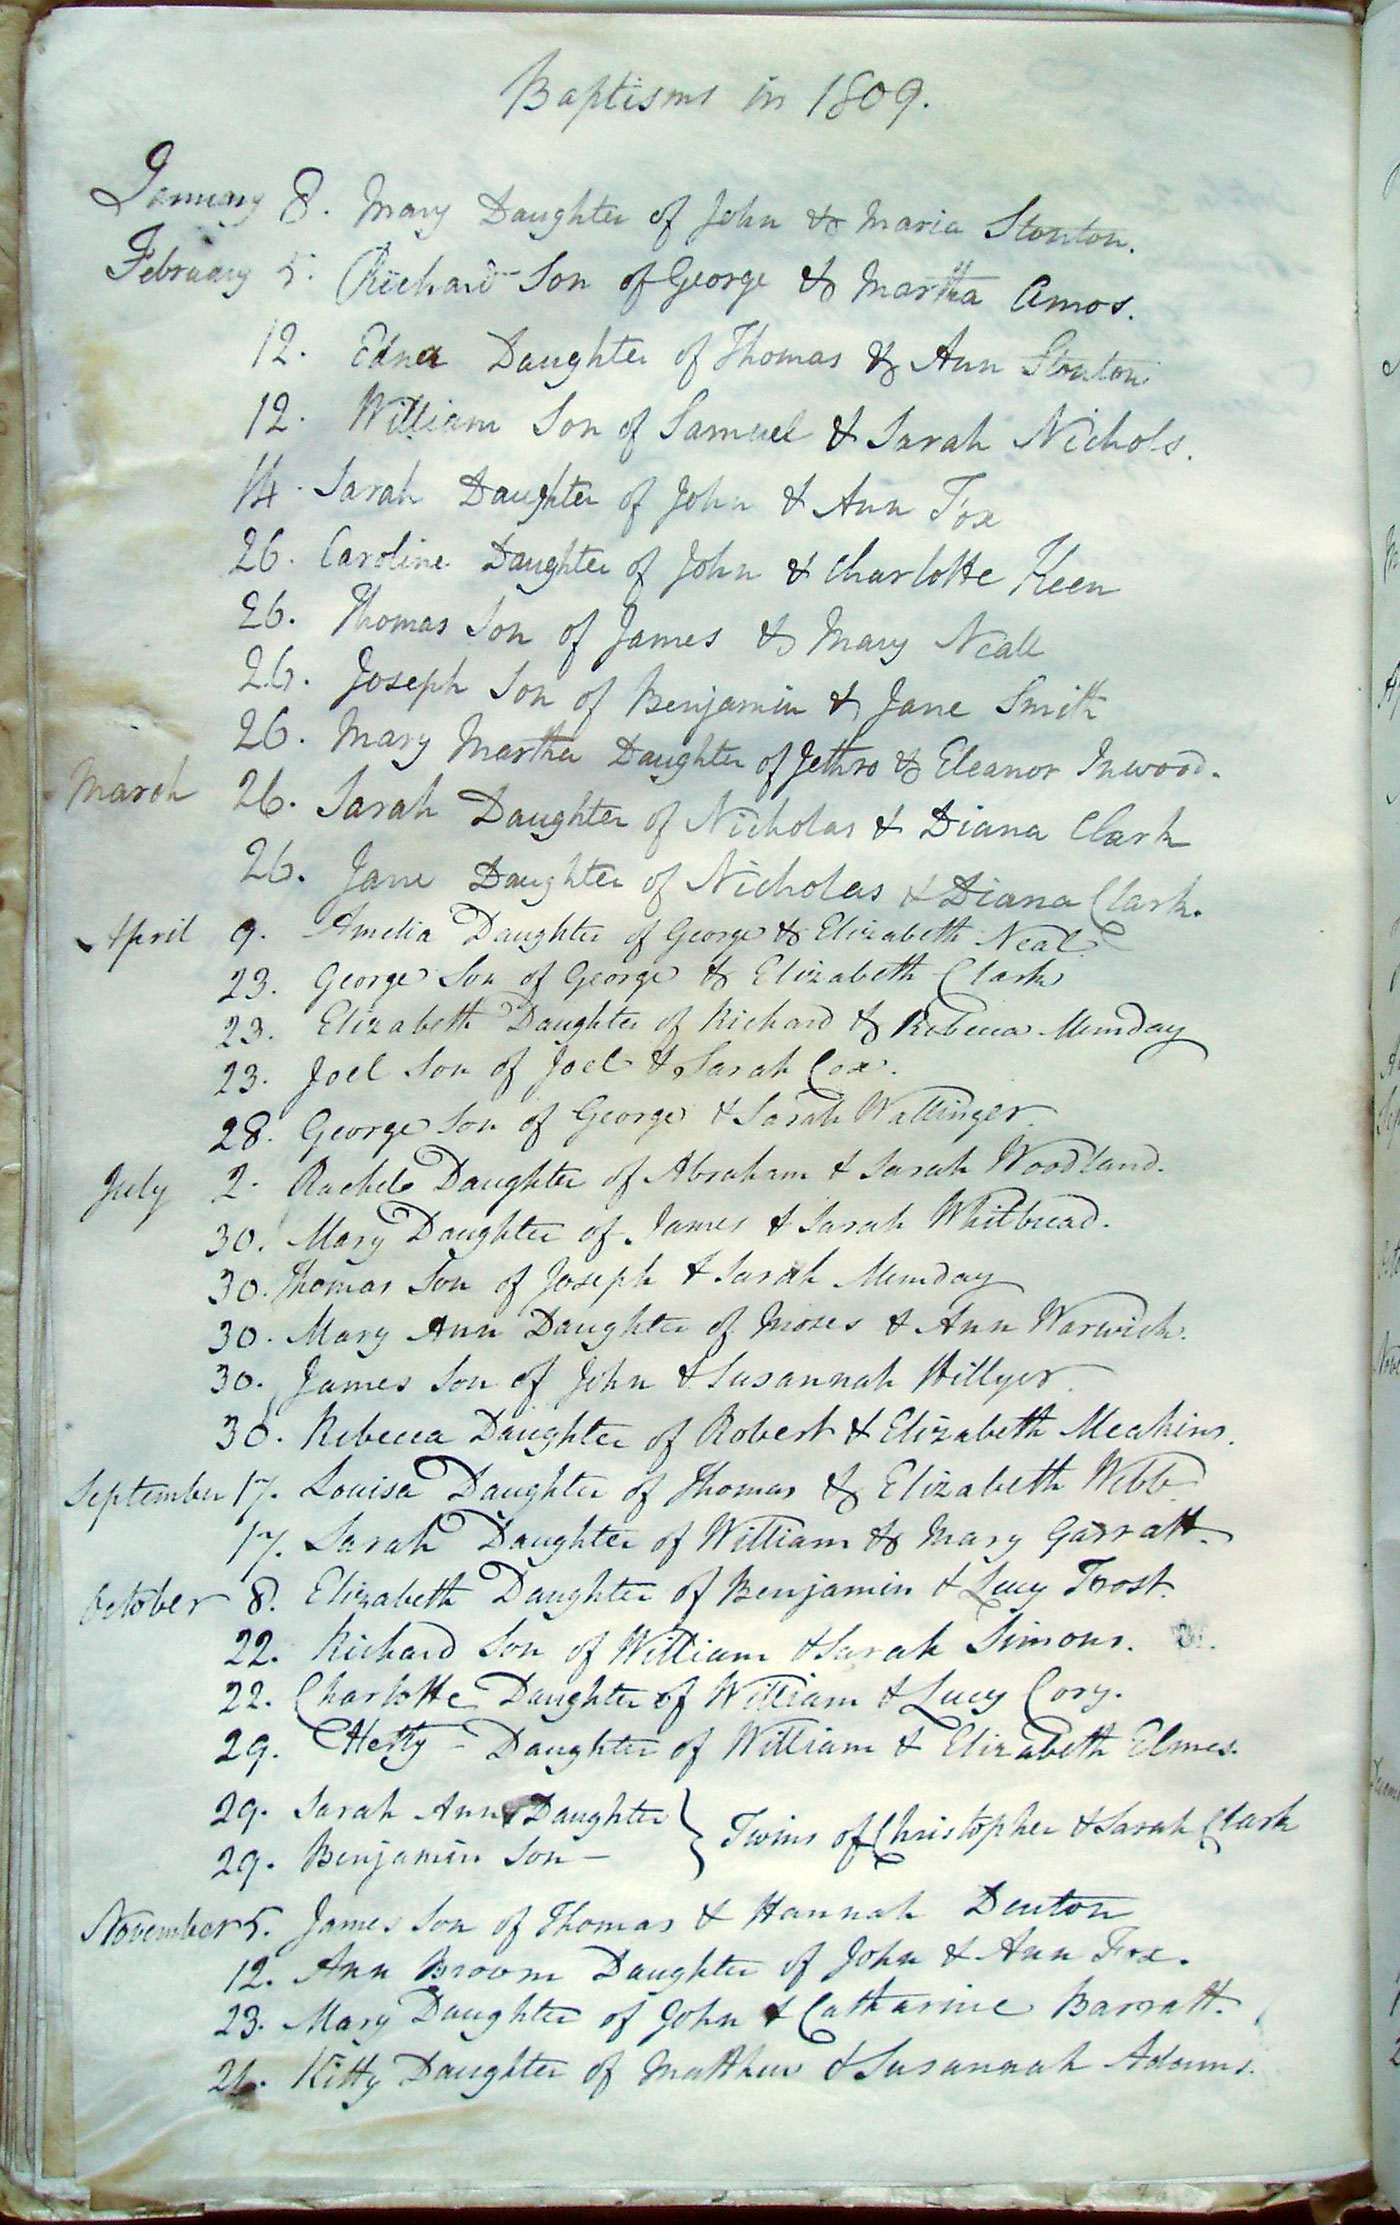 Baptisms in 1809.
January 8. Mary Daughter of John & Maria Stonton.
February 5. Richard Son of George & Martha Amos.
12. Edna Daughter of Thomas & Ann Stonton
12. William Son of Samuel & Sarah Nichols.
14. Sarah Daughter of John & Ann Fox
26. Caroline Daughter of John & Charlotte Keen
26. Thomas Son of James & Mary Neall
26. Joseph Son of Benjamin & Jane Smith
26. Mary Martha Daughter of Jethro & Eleanor Inwood.
March 26. Sarah Daughter of Nicholas & Diana Clark
26. Jane Daughter of Nicholas & Diana Clark.
April 9. Amelia Daughter of George & Elizabeth Neal
23. George Son of George & Elizabeth Clark
23. Elizabeth Daughter of Richard & Rebecca Munday
23. Joel Son of Joel & Sarah Cox.
28. George Son of George & Sarah Wallinger.
July 2. Rachel Daughter of Abraham & Sarah Woodland.
30. Mary Daughter of James & Sarah Whitbread.
30. Thomas Son of Joseph & Sarah Munday
30. Mary Ann Daughter of Moses & Ann Warwick.
30. James Son of John & Susannah Hillyer.
30. Rebecca Daughter of Robert & Elizabeth Meakins.
September 17. Louisa Daughter of Thomas & Elizabeth Webb
17. Sarah Daughter of William & Mary Garratt.
October 8. Elizabeth Daughter of Benjamin & Lucy Frost.
22. Richard Son of William & Sarah Simons.
22. Charlotte Daughter of William & Lucy Cory.
29. Hetty - Daughter of William & Elizabeth Elmes.
29. Sarah Ann Daughter } Twins of Christopher & Sarah Clark
29. Benjamin Son -
November 5. James Son of Thomas & Hannah Denton
12. Ann Brown Daughter of John & Ann Fox.
23. Mary Daughter of John & Catharine Barratt.
Kitty Daughter of Matthew & Susannah Adams.